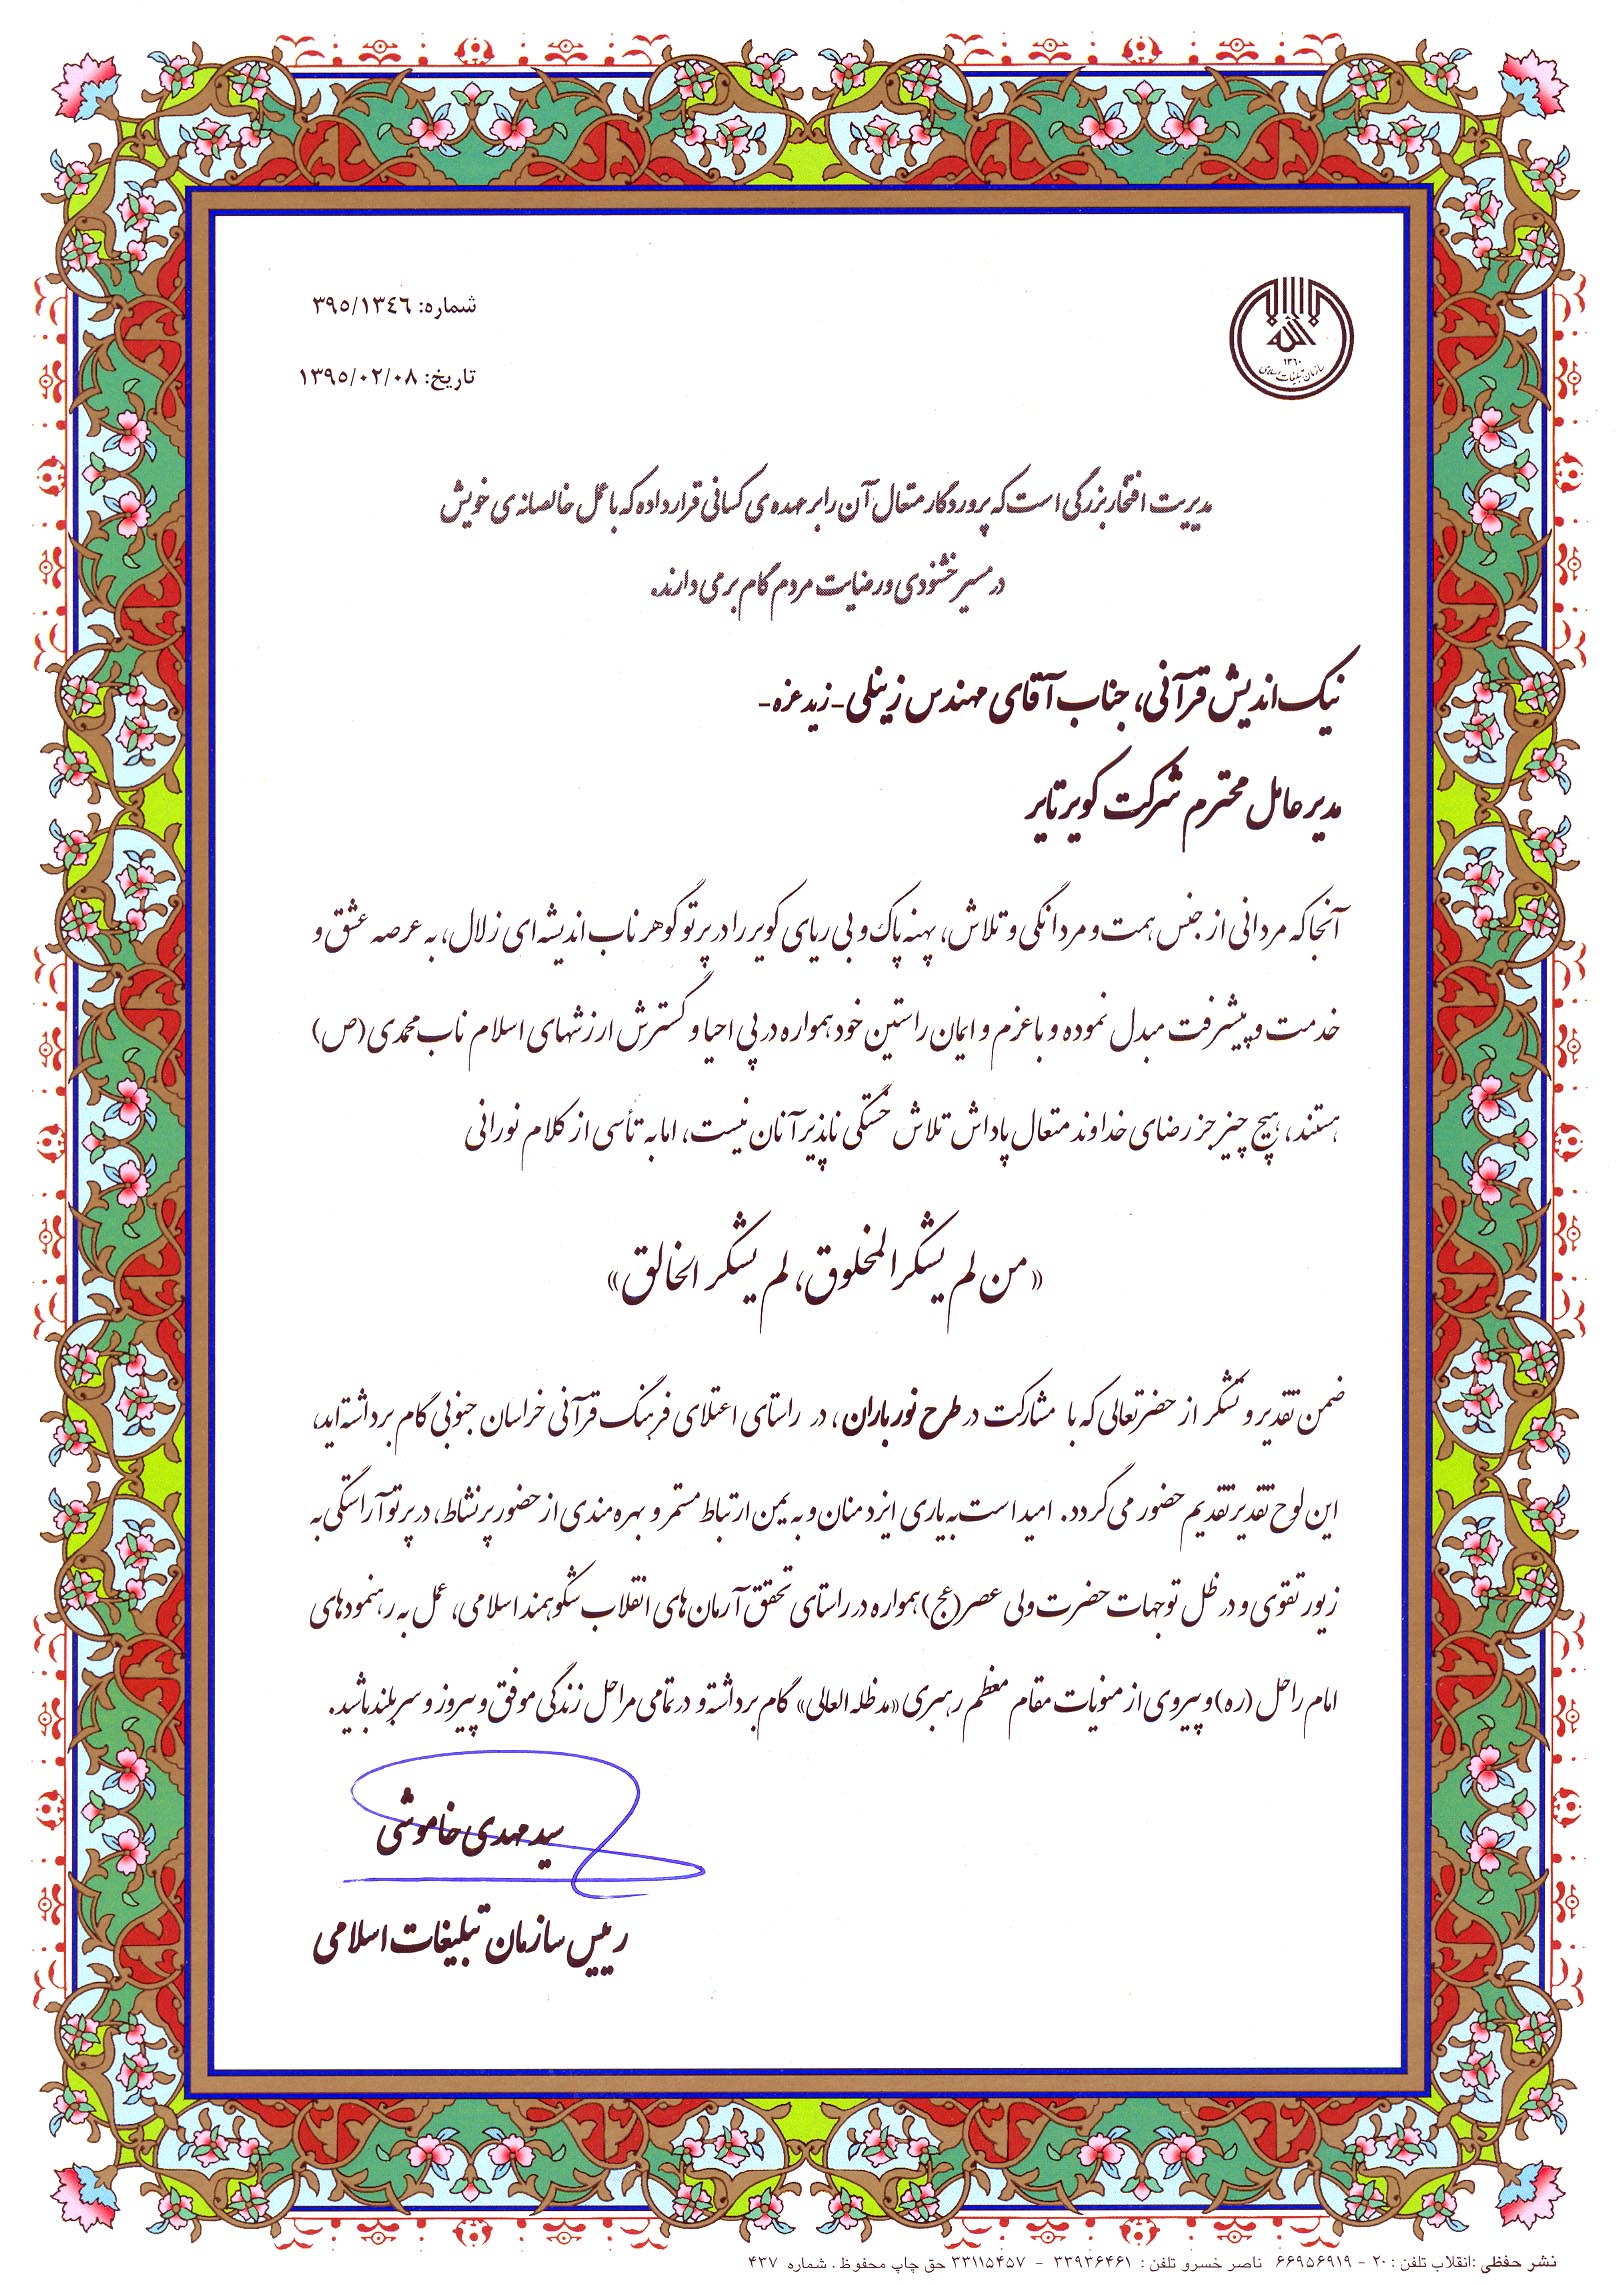 شماره: ۳۹۵/۱۳٤٦
تاریخ: ۱۳۹۵/۰۲/۰۸
۱۳۶۰
سازمان تبلیغات اسلامی
مدیریت افتخار بزرگی است که پروردگار متعال آن را بر عهده ی کسانی قرار داده که با عمل خالصانه ی خویش
در مسیر خشنودی و رضایت مردم گام برمی دارند.
نیک اندیش قرآنی، جناب آقای مهندس زینلی -زید عزه-
مدیر عامل محترم شرکت کویر تایر
آنجا که مردانی از جنس همت و مردانگی و تلاش، پهنه پاک و بی ریای کویر را در پرتو گوهر ناب اندیشه ای زلال، به عرصه عشق و
خدمت و پیشرفت مبدل نموده و با عزم و ایمان راستین خود همواره در پی احیا و گسترش ارزشهای اسلام ناب محمدی (ص)
هستند، هیچ چیز جز رضای خداوند متعال پاداش تلاش خستگی ناپذیر آنان نیست، اما به تأسی از کلام نورانی
«من لم یشکر المخلوق، لم یشکر الخالق»
ضمن تقدیر و تشکر از حضرتعالی که با مشارکت در طرح نور باران، در راستای اعتلای فرهنگ قرآنی خراسان جنوبی گام برداشته اید،
این لوح تقدیر تقدیم حضور می گردد. امید است به یاری ایزد منان و به یمن ارتباط مستمر و بهره مندی از حضور پر نشاط، در پرتو آراستگی به
زیور تقوی و در ظل توجهات حضرت ولی عصر (عج) همواره در راستای تحقق آرمان های انقلاب شکوهمند اسلامی، عمل به رهنمودهای
امام راحل (ره) و پیروی از منویات مقام معظم رهبری «مد ظله العالی» گام برداشته و در تمامی مراحل زندگی موفق و پیروز و سربلند باشید.
سید مهدی خاموشی
رییس سازمان تبلیغات اسلامی
نشر حفظی: انقلاب تلفن: ۲۰ - ۶۶۹۵۶۹۱۹ ناصر خسرو تلفن: ۳۳۹۳۶۴۶۱ - ۳۳۱۱۵۴۵۷ حق چاپ محفوظ. شماره ۴۳۷